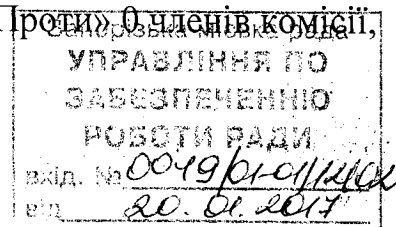 Проти» 0 членів комісії,
Запорізька міська рада
УПРАВЛІННЯ ПО
ЗАБЕЗПЕЧЕННЮ
РОБОТИ РАДИ
вхід. № 0049/01-01/12/02
від 20.01.2017